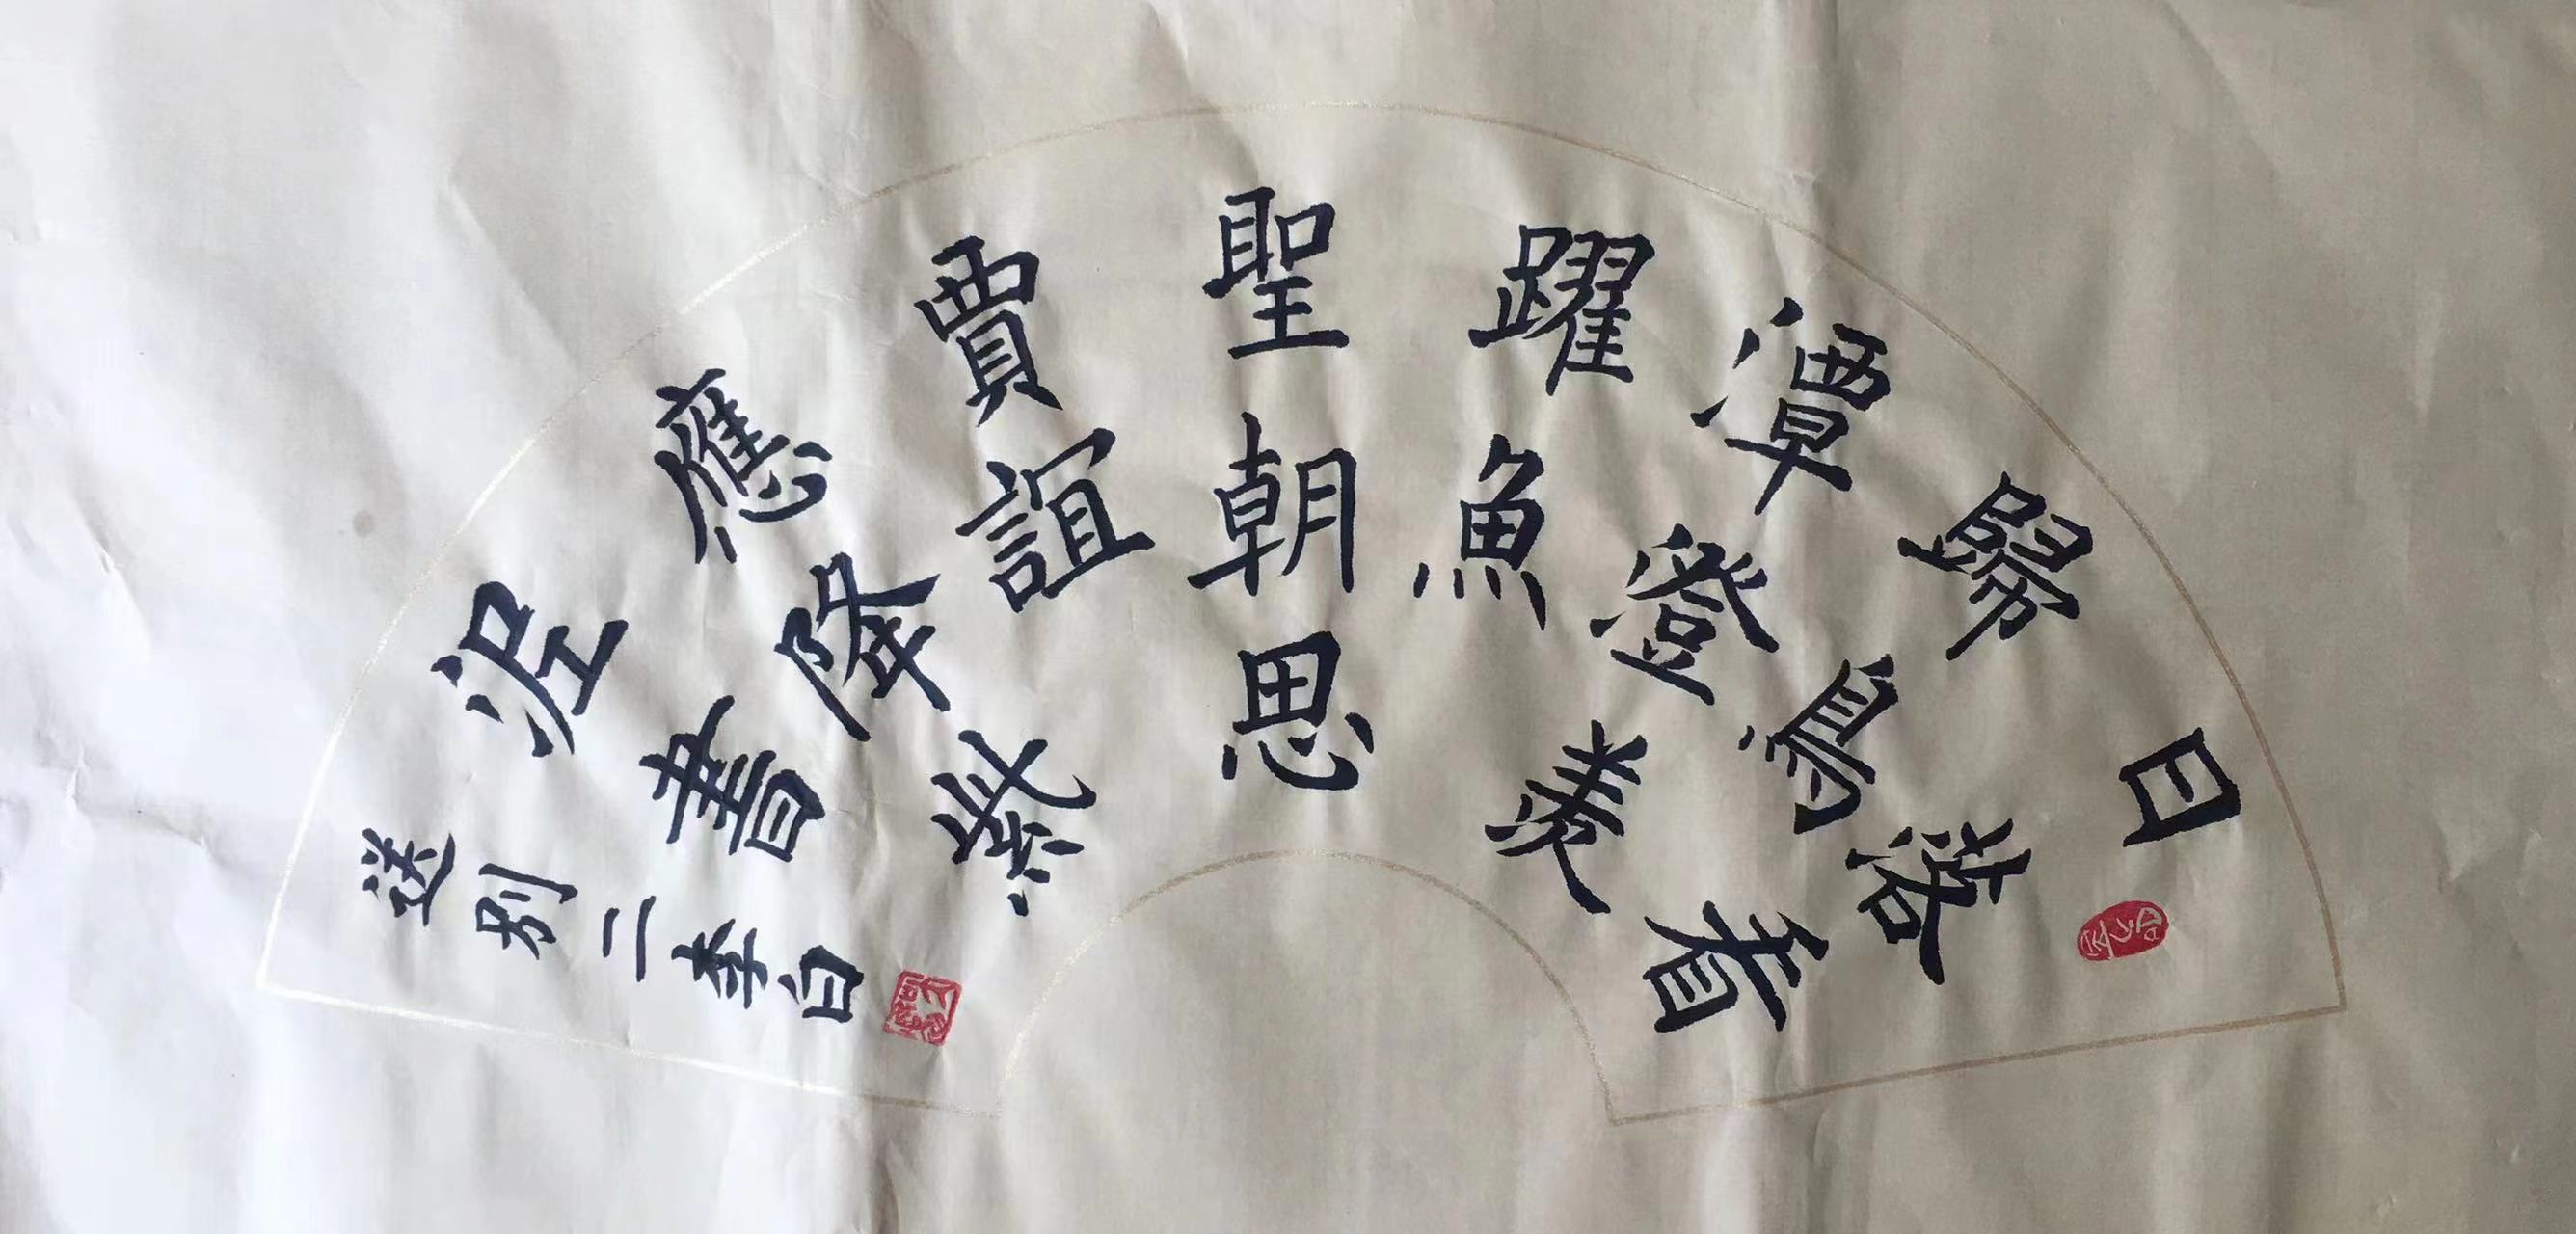 日落看
歸鳥
潭澄羨
躍魚
聖朝思
賈誼
應降紫
泥書
送別二李白